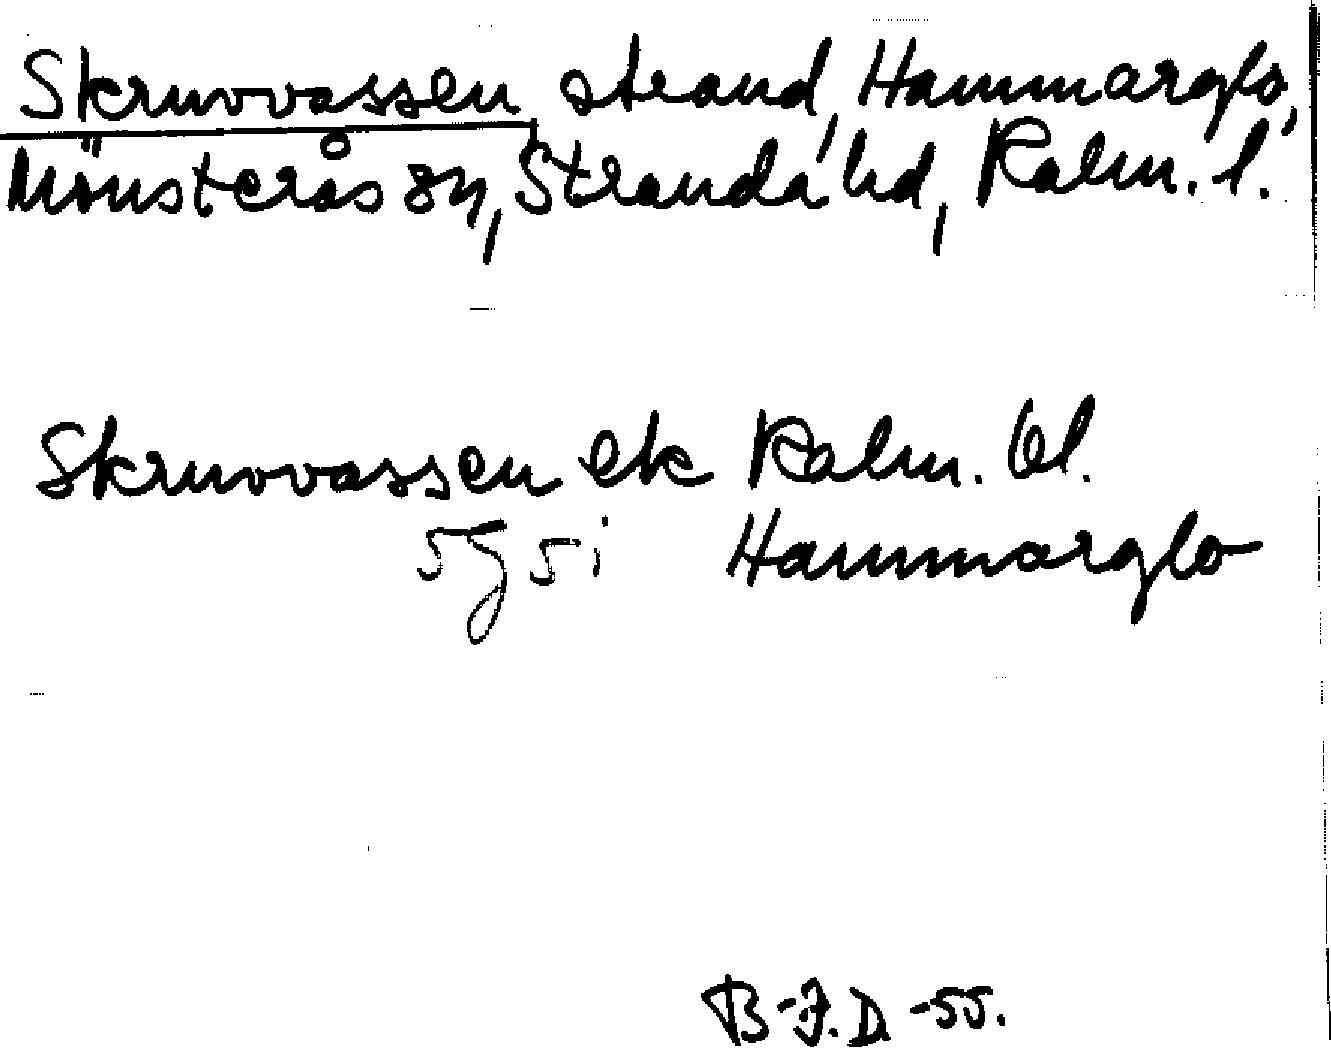 Skruvvassen, strand, Hammarglo,
Mönsterås sn, Stranda hd, Kalm. l.
Skruvvassen ek Kalm. bl.
5g 5i Hammarglo
B-J.D. -55.